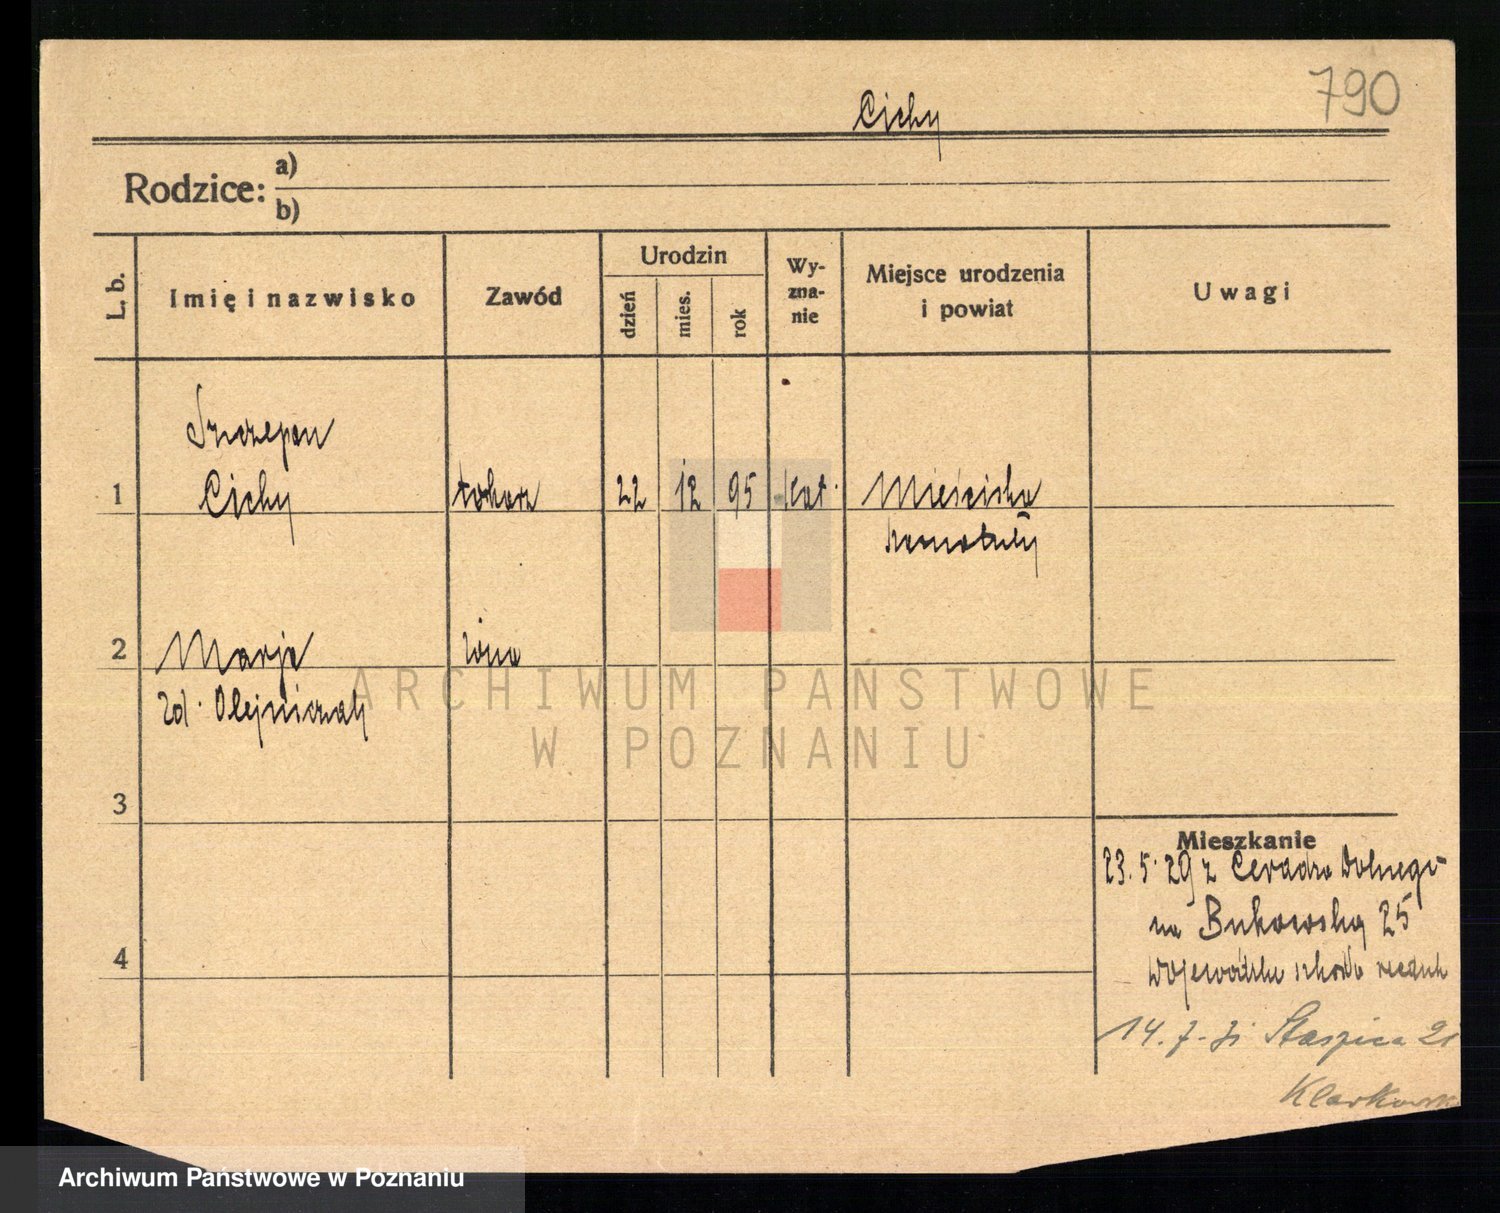 790
Cichy
Rodzice: a)
b)
L. b.
Imię i nazwisko
Zawód
Urodzin
dzień
mies.
rok
Wy-
zna-
nie
Miejsce urodzenia
i powiat
Uwagi
Szczepan
1 Cichy tokarz 22 12 95 kat. Mieściska
Szamotuły
2 Marja żona
zd. Olejniczak
3
Mieszkanie
23.5.29 z Ceradza Dolnego
na Bukowską 25
4
14.7.31 Staszica 21
ARCHIWUM PAŃSTWOWE
W POZNANIU
Archiwum Państwowe w Poznaniu